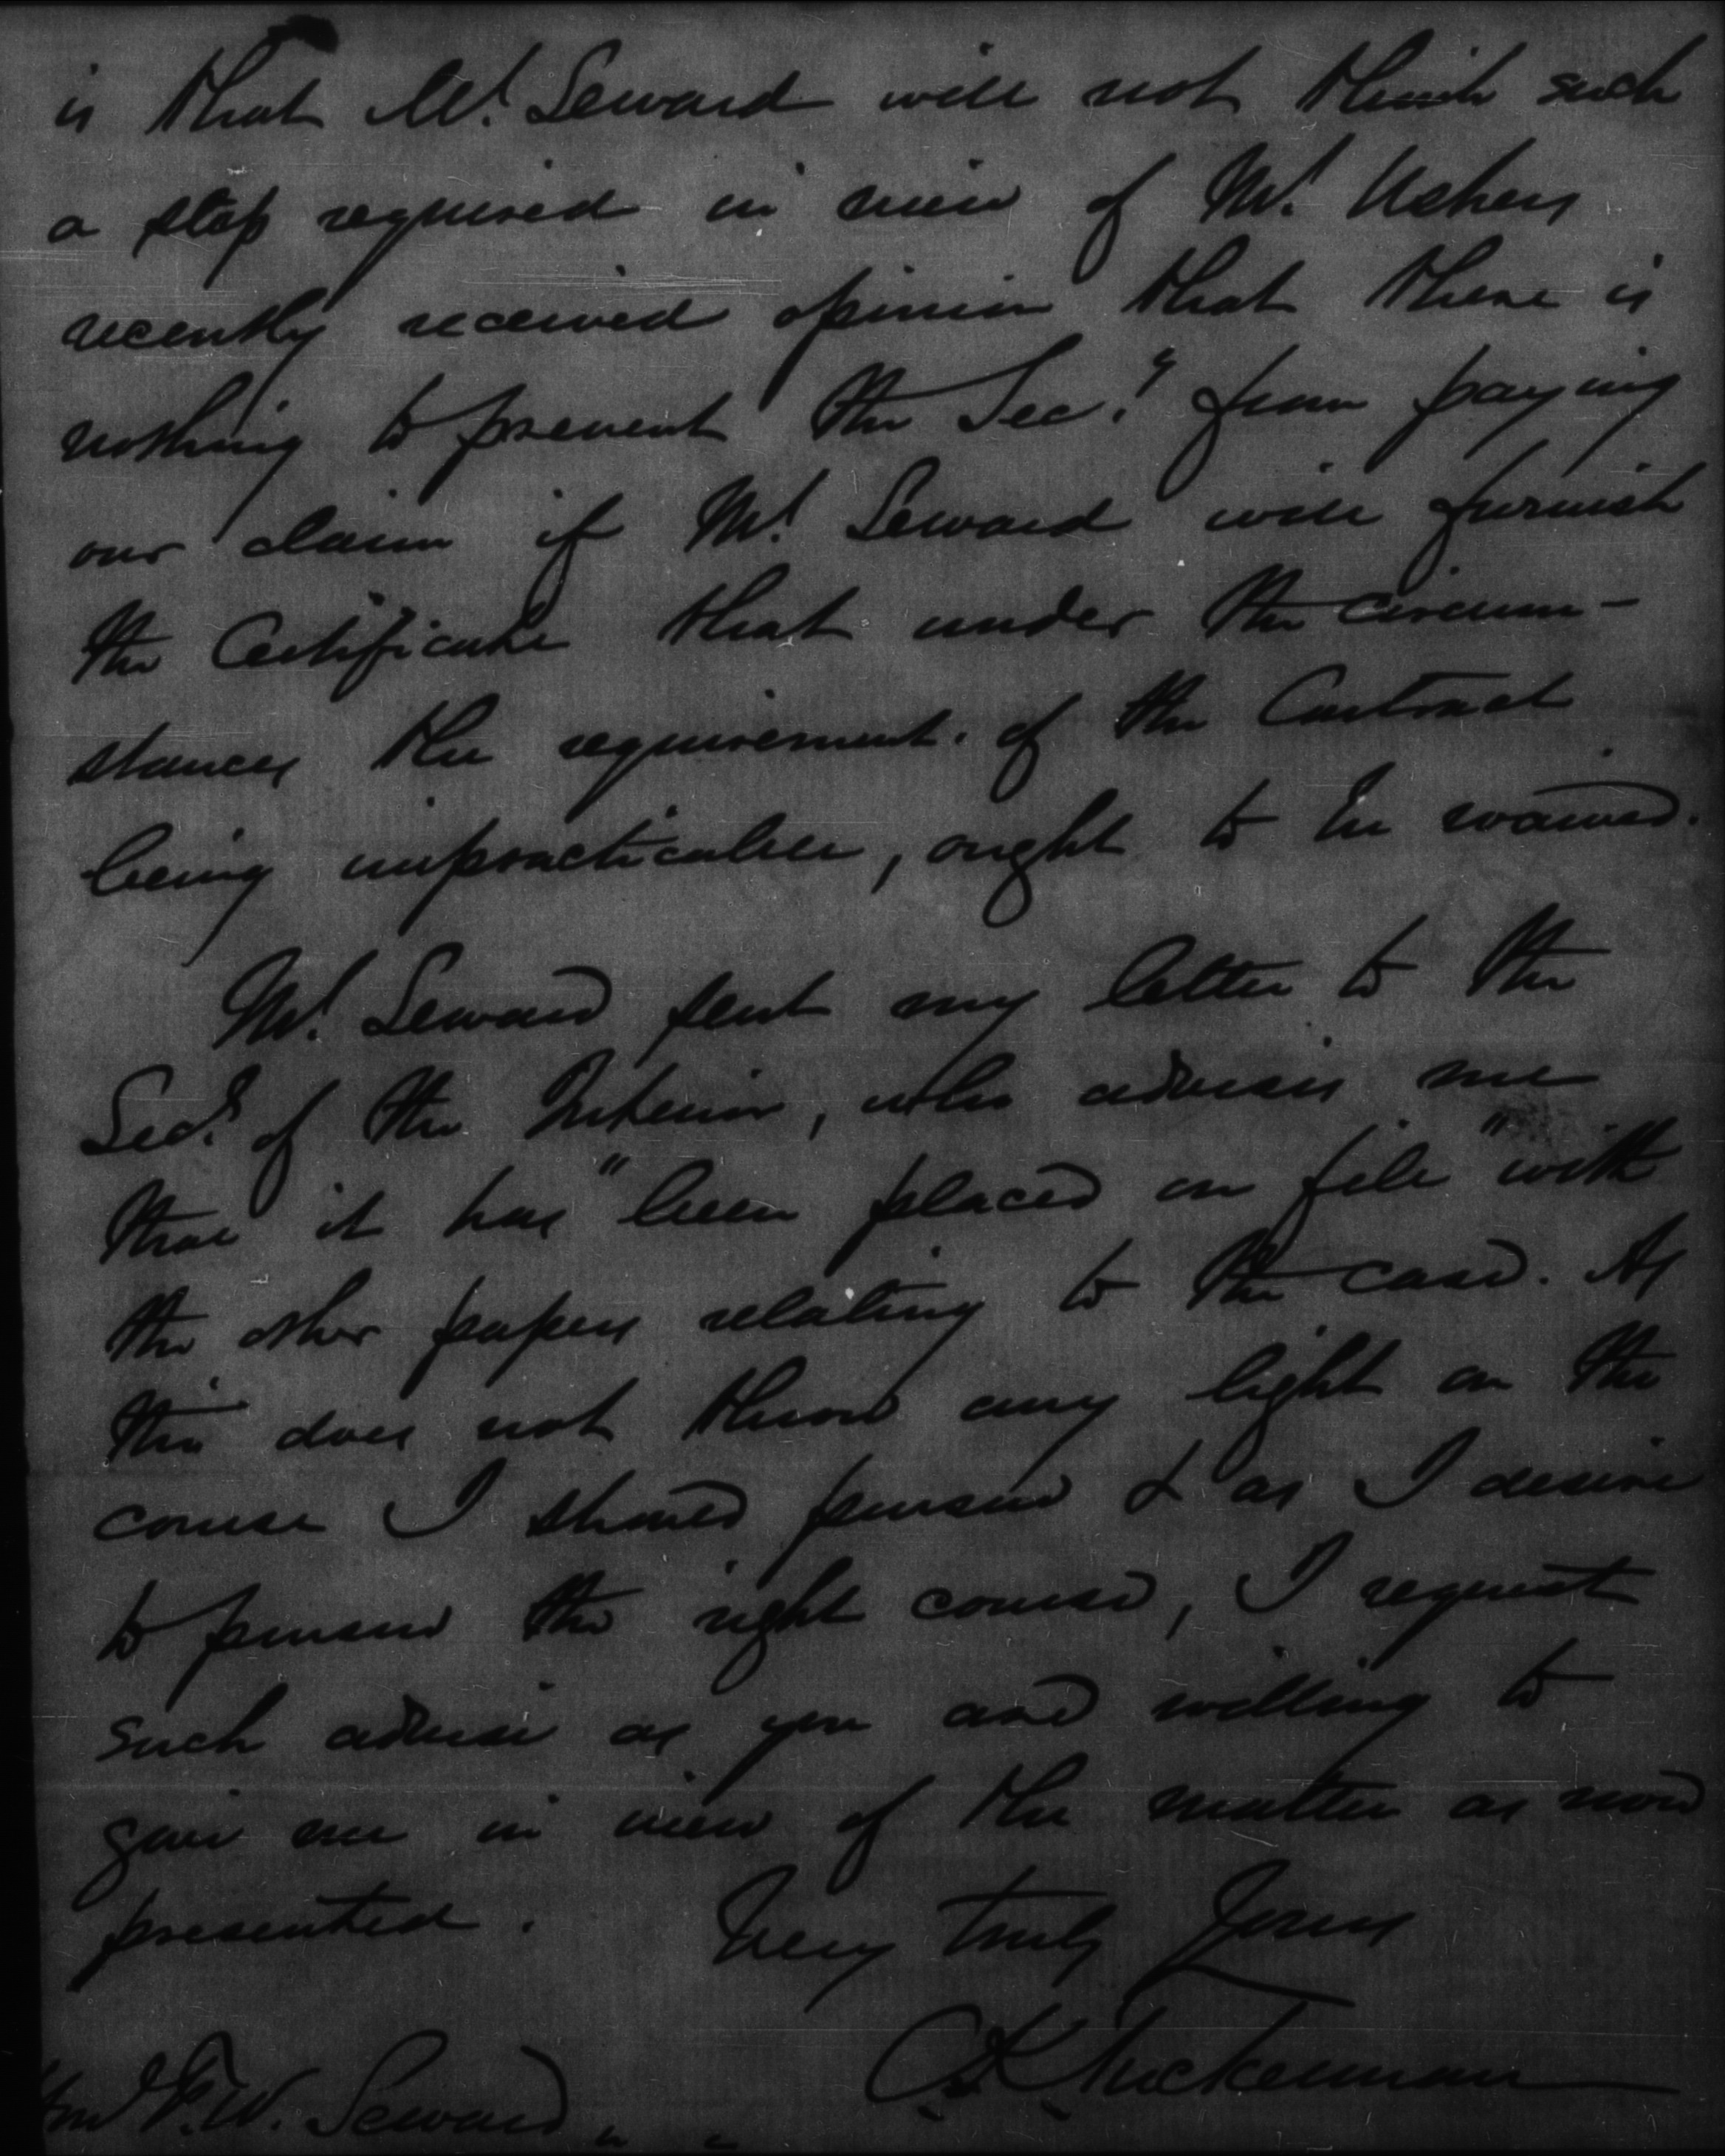 is that Mr. Seward will not think such
a step required in view of Mr. Ushers
recently received opinion that there is
nothing to prevent the Secy. from paying
our claim if Mr. Seward will furnish
the Certificate that under the circum-
stances the requirement. of the Contract
being impracticable, ought to be waived.
Mr. Seward sent my letter to the
Secy. of the Interior, who advises me
that it has "been placed on file" with
the other papers relating to the case. As
this does not throw any light on the
course I should pursue & as I desire
to pursue the right course, I request
such advise as you are willing to
give me in view of the matter as now
presented.
Very truly Yours
C K Tuckerman
Hon F. W. Seward